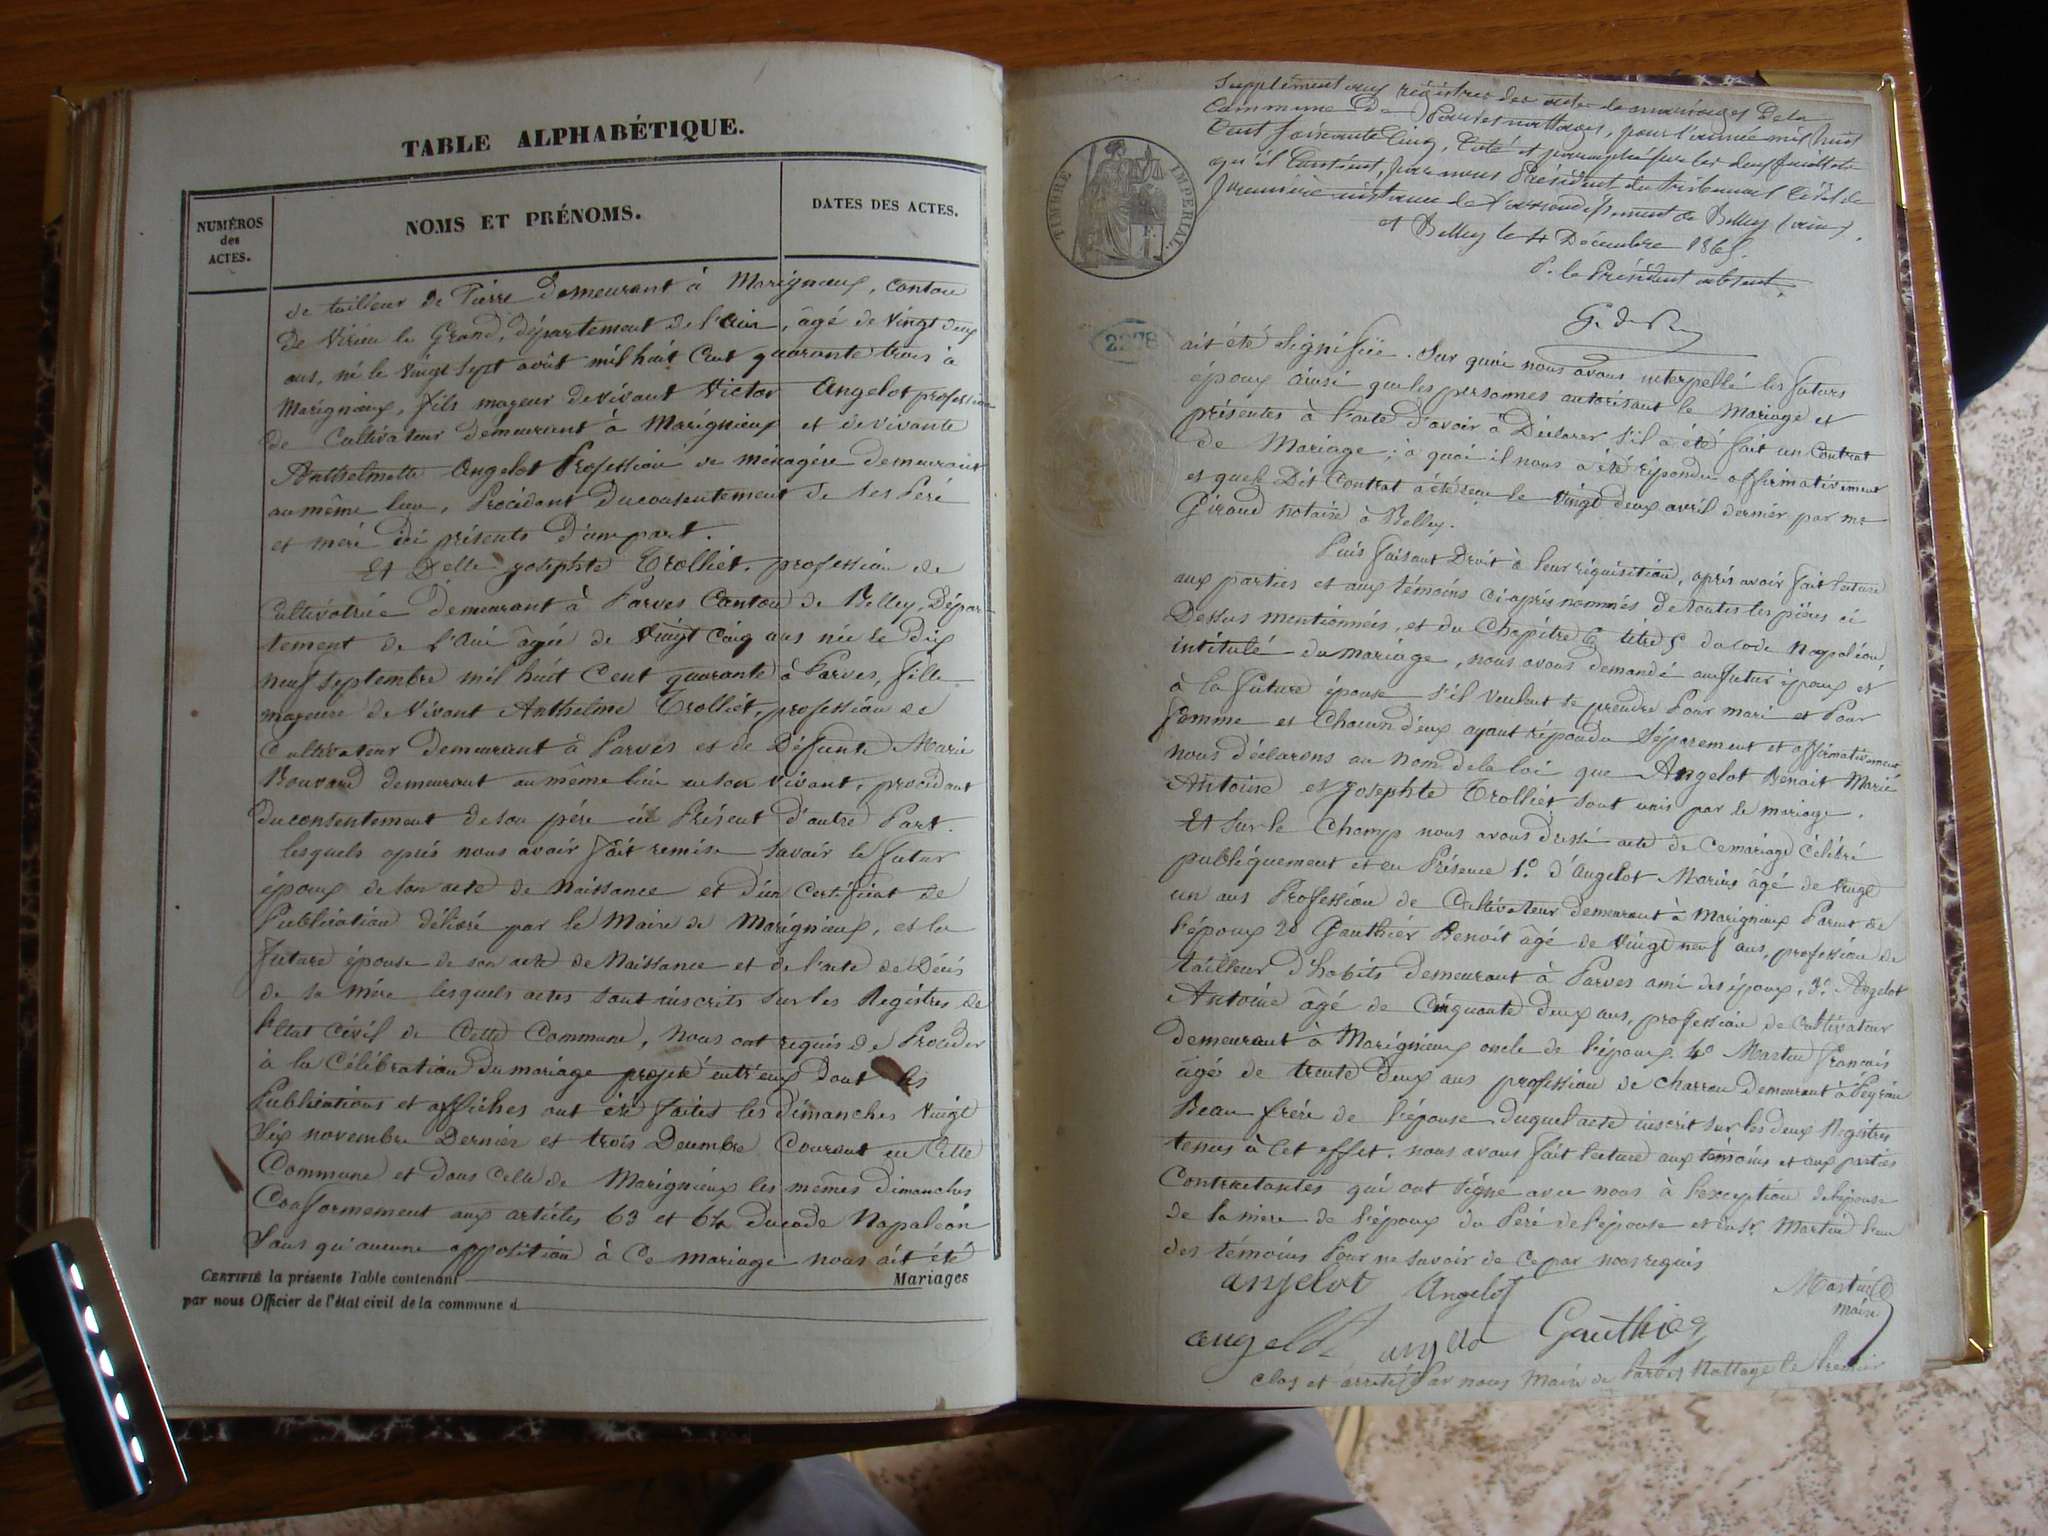 TABLE ALPHABÉTIQUE.
NUMÉROS
des
ACTES.
NOMS ET PRÉNOMS.
DATES DES ACTES.
de tailleur de Pierre demeurant à Marignieux, canton
de Virieu le Grand, département de l'Ain, âgé de vingt deux
ans, né le vingt sept août mil huit Cent quarante trois à
Marignieux, fils majeur de vivant Victor Angelot profession
de Cultivateur demeurant à Marignieux et de vivante
Anthelmette Angelot Profession de ménagère demeurant
au même lieu, Procédant du consentement de ses Peré
et meré ici présents d'une part.
Et Delle Josephte Trolliet, profession de
Cultivatrice demeurant à Parves Canton de Belley, Dépar-
tement de l'Ain âgée de vingt Cinq ans née le dix
neuf septembre mil huit Cent quarante à Parves, fille
majeure de vivant Anthelme Trolliet, profession de
Cultivateur demeurant à Parves et de Défunte Marie
Bouvard demeurant au même lieu en son vivant, procédant
du consentement de son pére ici Présent d'autre Part.
lesquels après nous avoir fait remise savoir le futur
époux de son acte de Naissance et d'un Certificat de
Publication délivré par le Maire de Marignieux, et la
future épouse de son acte de Naissance et de l'acte de Décès
de sa mère lesquels actes sont inscrits sur les Registres de
l'Etat Civil de Cette Commune, nous ont requis de Procéder
à la Célébration du mariage projeté entr'eux dont les
Publications et affiches ont été faites les dimanches vingt
Six novembre Dernier et trois Decembre Courant en Cette
Commune et dans Celle de Marignieux les mêmes dimanches
Conformement aux articles 63 et 64 du code Napoléon
Sans qu'aucune opposition à Ce mariage nous ait été
CERTIFIÉ la présente Table contenant Mariages
par nous Officier de l'état civil de la commune d
Supplément aux régistres des actes de mariages de la
Commune de Parves nattages, pour l'année mil huit
Cent soixante Cinq, Coté et paraphé sur les deux feuillets
qu'il Contient, par nous Président du Tribunal Civil de
première instance de l'arrondissement de Belley (ain).
A Belley le 4 Décembre 1865.
P. le Président absent,
TIMBRE IMPÉRIAL
2278
ait été Signifiée. Sur quoi nous avons interpellé les futurs
époux ainsi que les personnes autorisant le Mariage et
présentes à l'acte d'avoir à Déclarer s'il a été fait un Contrat
de Mariage; à quoi il nous a été répondu affirmativement
et que le Dit Contrat a été reçu le vingt deux avril dernier par me
Giraud notaire à Belley.
Puis faisant Droit à leur réquisition, après avoir fait lecture
aux parties et aux témoins ci après nommés de toutes les pièces ci
Dessus mentionnées, et du Chapitre 6 titre 5 du code Napoléon,
intitulé du mariage, nous avons demandé au futur époux et
à la future épouse s'il veulent se prendre Pour mari et Pour
femme et Chacun d'eux ayant répondu Séparement et affirmativement
nous déclarons au nom de la loi que Angelot Benoit Marie
Antoine et Josephte Trolliet sont unis par le mariage.
Et sur le Champ nous avons dressé acte de Ce mariage Célébré
publiquement et en Présence 1º d'Angelot Marius âgé de vingt
un ans Profession de Cultivateur demeurant à Marignieux Parent de
l'époux 2º Gauthier Benoit âgé de vingt neuf ans, profession de
tailleur d'habits demeurant à Parves ami des époux, 3º Angelot
Antoine âgé de Cinquante deux ans, profession de Cultivateur
demeurant à Marignieux oncle de l'époux 4º Martin francois
âgé de trente deux ans profession de charron demeurant à Peyrieu
Beau frére de l'épouse duquel acte inscrit sur les deux Régistres
tenus à Cet effet. nous avons fait lecture aux témoins et aux parties
Contractantes qui ont Signé avec nous à l'exception de l'épouse
de la mere de l'époux du Peré de l'épouse et du Sr. Martin l'un
des témoins Pour ne savoir de Ce par nous requis
angelot Angelot
Martin
maire
angelot angelot Gauthier
Clos et arrété Par nous Maire de Parves Nattage le Premier